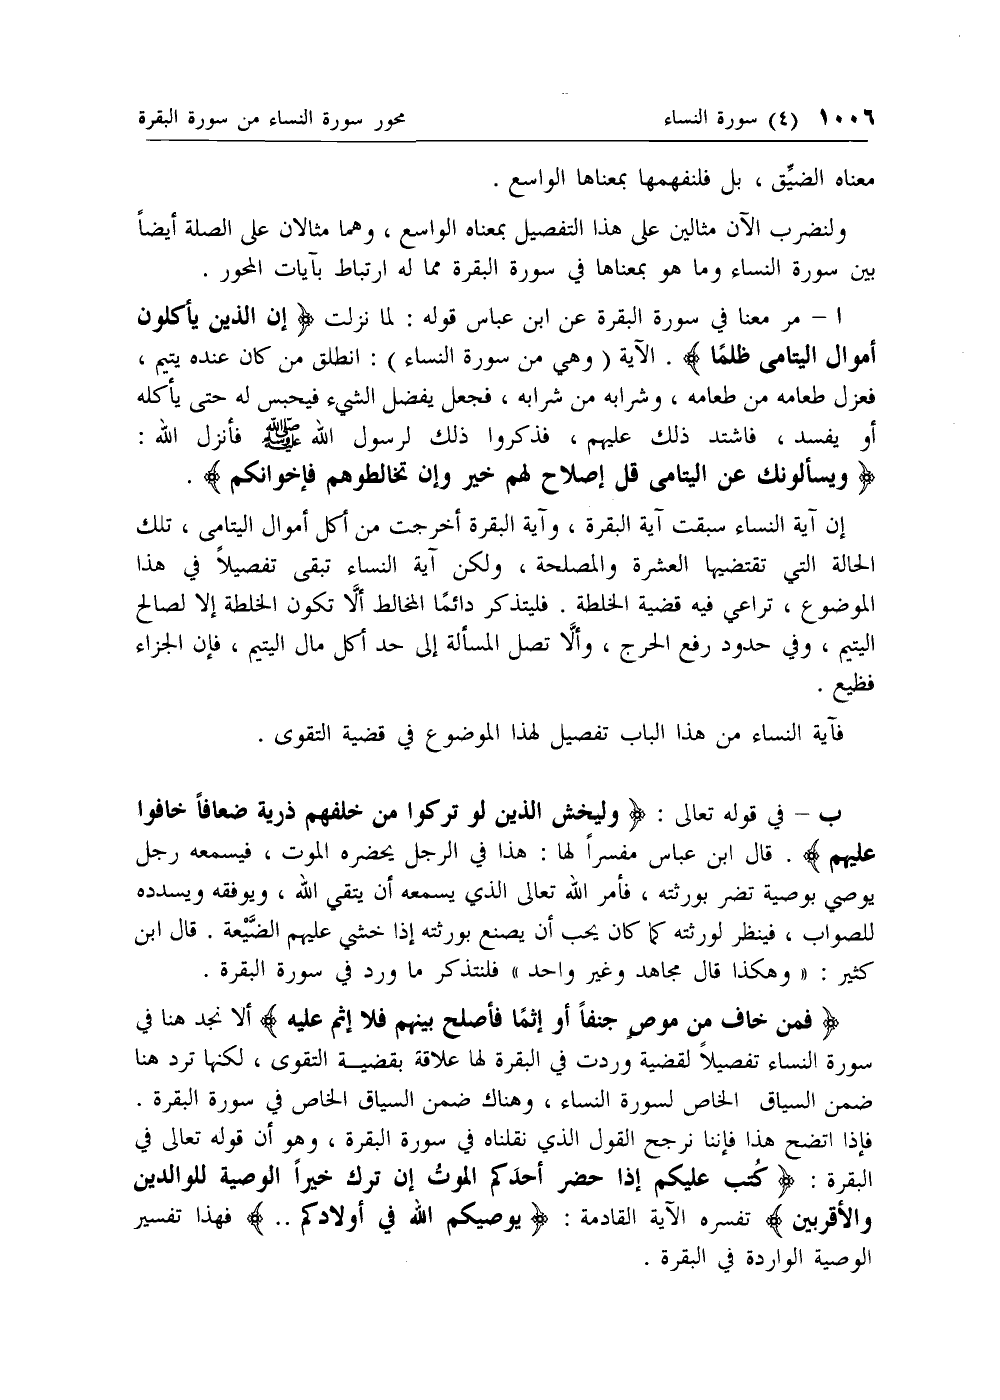 ١٠٠٦ (٤) سورة النساء محور سورة النساء من سورة البقرة
معناه الضيِّق ، بل فلنفهمها بمعناها الواسع .
ولنضرب الآن مثالين على هذا التفصيل بمعناه الواسع ، وهما مثالان على الصلة أيضاً
بين سورة النساء وما هو بمعناها في سورة البقرة مما له ارتباط بآيات المحور .
ا – مر معنا في سورة البقرة عن ابن عباس قوله : لما نزلت ﴿ إن الذين يأكلون
أموال اليتامى ظلمًا ﴾ . الآية ( وهي من سورة النساء ) : انطلق من كان عنده يتيم ،
فعزل طعامه من طعامه ، وشرابه من شرابه ، فجعل يفضل الشيء فيحبس له حتى يأكله
أو يفسد ، فاشتد ذلك عليهم ، فذكروا ذلك لرسول الله ﷺ فأنزل الله :
﴿ ويسألونك عن اليتامى قل إصلاح لهم خير وإن تخالطوهم فإخوانكم ﴾ .
إن آية النساء سبقت آية البقرة ، وآية البقرة أخرجت من أكل أموال اليتامى ، تلك
الحالة التي تقتضيها العشرة والمصلحة ، ولكن آية النساء تبقى تفصيلاً في هذا
الموضوع ، تراعي فيه قضية الخلطة . فليتذكر دائمًا المخالط ألَّا تكون الخلطة إلا لصالح
اليتيم ، وفي حدود رفع الحرج ، وألَّا تصل المسألة إلى حد أكل مال اليتيم ، فإن الجزاء
فظيع .
فآية النساء من هذا الباب تفصيل لهذا الموضوع في قضية التقوى .
ب – في قوله تعالى : ﴿ وليخش الذين لو تركوا من خلفهم ذرية ضعافاً خافوا
عليهم ﴾ . قال ابن عباس مفسراً لها : هذا في الرجل يحضره الموت ، فيسمعه رجل
يوصي بوصية تضر بورثته ، فأمر الله تعالى الذي يسمعه أن يتقي الله ، ويوفقه ويسدده
للصواب ، فينظر لورثته كما كان يحب أن يصنع بورثته إذا خشي عليهم الضَّيْعة . قال ابن
كثير : « وهكذا قال مجاهد وغير واحد » فلنتذكر ما ورد في سورة البقرة .
﴿ فمن خاف من موصٍ جنفاً أو إثمًا فأصلح بينهم فلا إثم عليه ﴾ ألا نجد هنا في
سورة النساء تفصيلاً لقضية وردت في البقرة لها علاقة بقضيـة التقوى ، لكنها ترد هنا
ضمن السياق الخاص لسورة النساء ، وهناك ضمن السياق الخاص في سورة البقرة .
فإذا اتضح هذا فإننا نرجح القول الذي نقلناه في سورة البقرة ، وهو أن قوله تعالى في
البقرة : ﴿ كُتب عليكم إذا حضر أحدَكم الموتُ إن ترك خيراً الوصية للوالدين
والأقربين ﴾ تفسره الآية القادمة : ﴿ يوصيكم الله في أولادكم .. ﴾ فهذا تفسير
الوصية الواردة في البقرة .